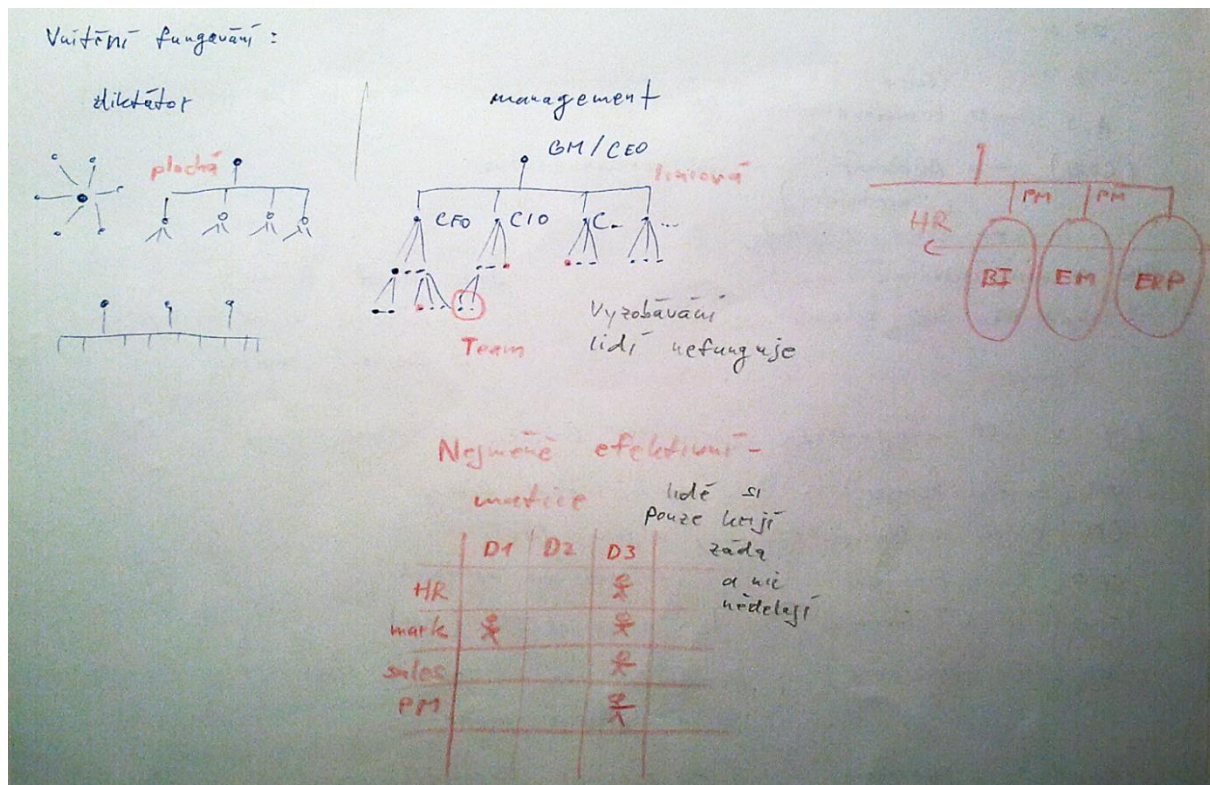 Vnitřní fungování :
diktátor
management
GM / CEO
plochá
liniová
CFO
CIO
C..
...
Team
Vyzobávání
lidí nefunguje
PM
PM
HR
BI
EM
ERP
Nejméně efektivní -
matice
lidé si
pouze kryjí
záda
a nic
nedělají
D1 D2 D3
HR
mark
sales
PM